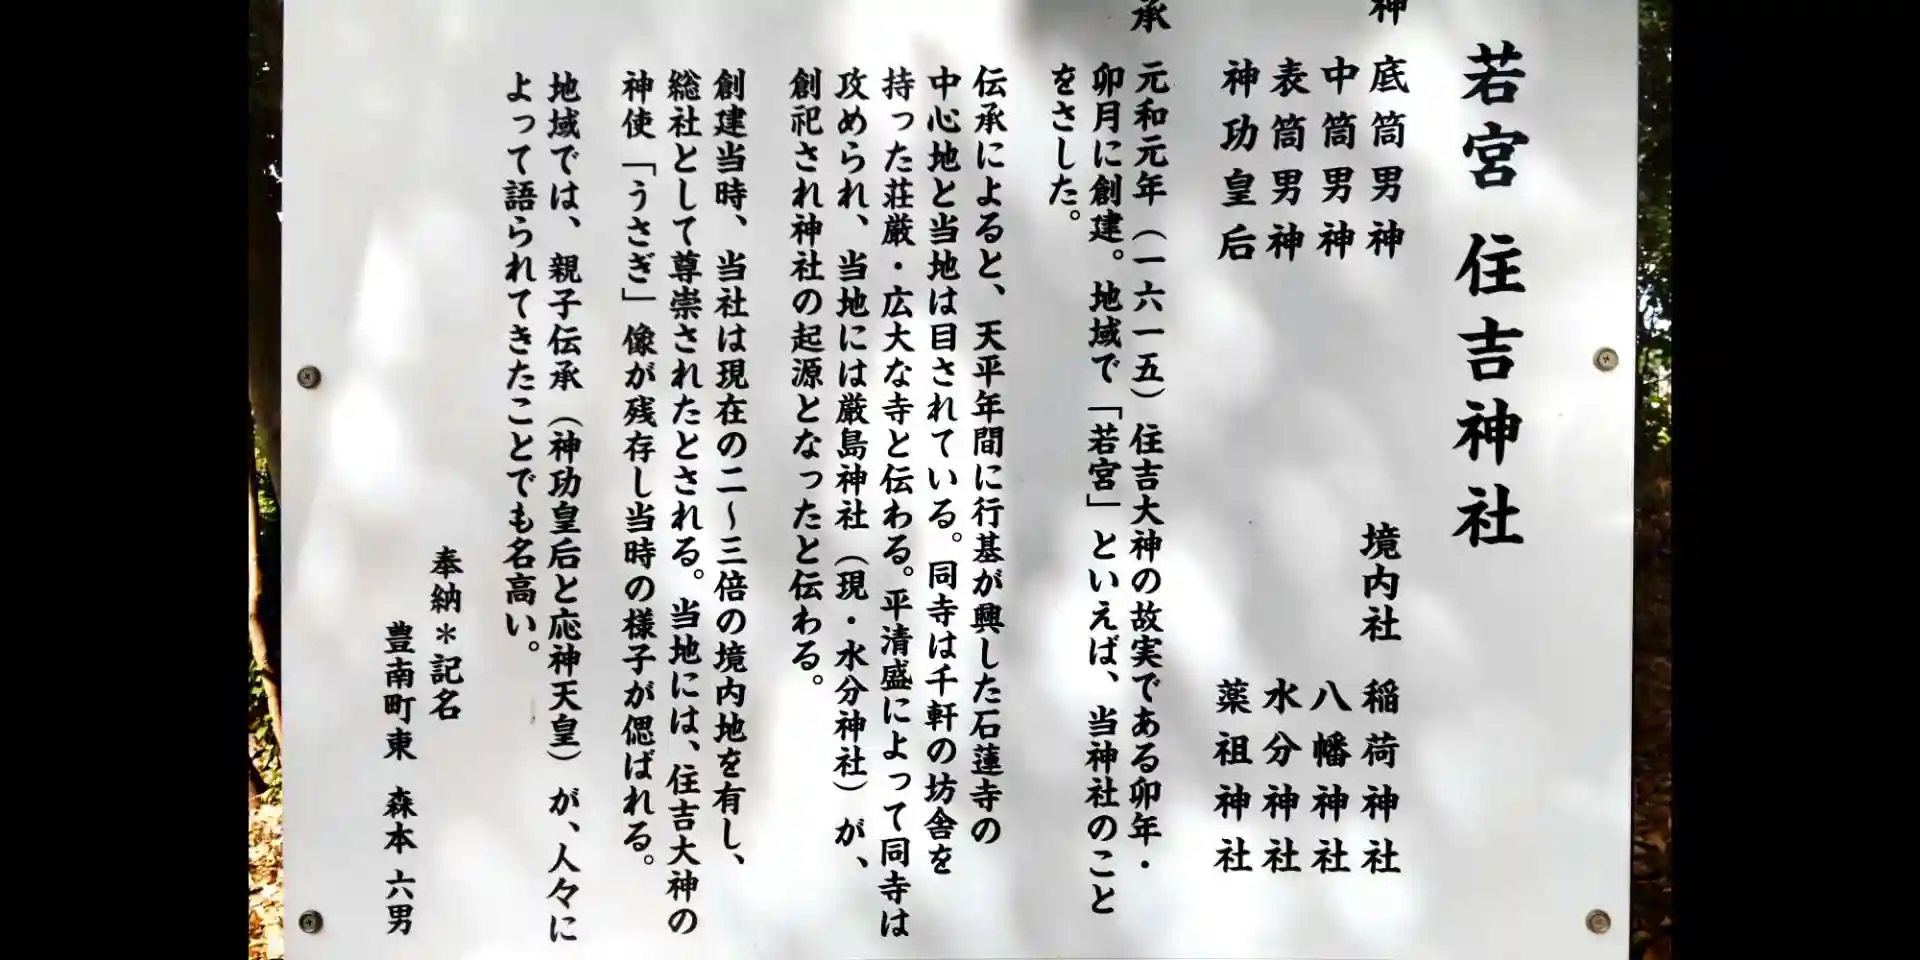 若宮 住吉神社
神 底筒男神
中筒男神
表筒男神
神功皇后
境内社 稲荷神社
八幡神社
水分神社
薬祖神社
承 元和元年（一六一五）住吉大神の故実である卯年・
卯月に創建。地域で「若宮」といえば、当神社のこと
をさした。
伝承によると、天平年間に行基が興した石蓮寺の
中心地と当地は目されている。同寺は千軒の坊舎を
持った荘厳・広大な寺と伝わる。平清盛によって同寺は
攻められ、当地には厳島神社（現・水分神社）が、
創祀され神社の起源となったと伝わる。
創建当時、当社は現在の二〜三倍の境内地を有し、
総社として尊崇されたとされる。当地には、住吉大神の
神使「うさぎ」像が残存し当時の様子が偲ばれる。
地域では、親子伝承（神功皇后と応神天皇）が、人々に
よって語られてきたことでも名高い。
奉納＊記名
豊南町東 森本 六男